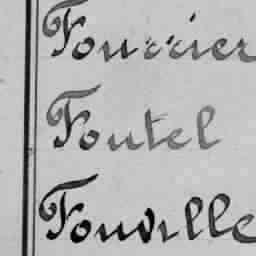 Fourrier
Foutel
Fouville